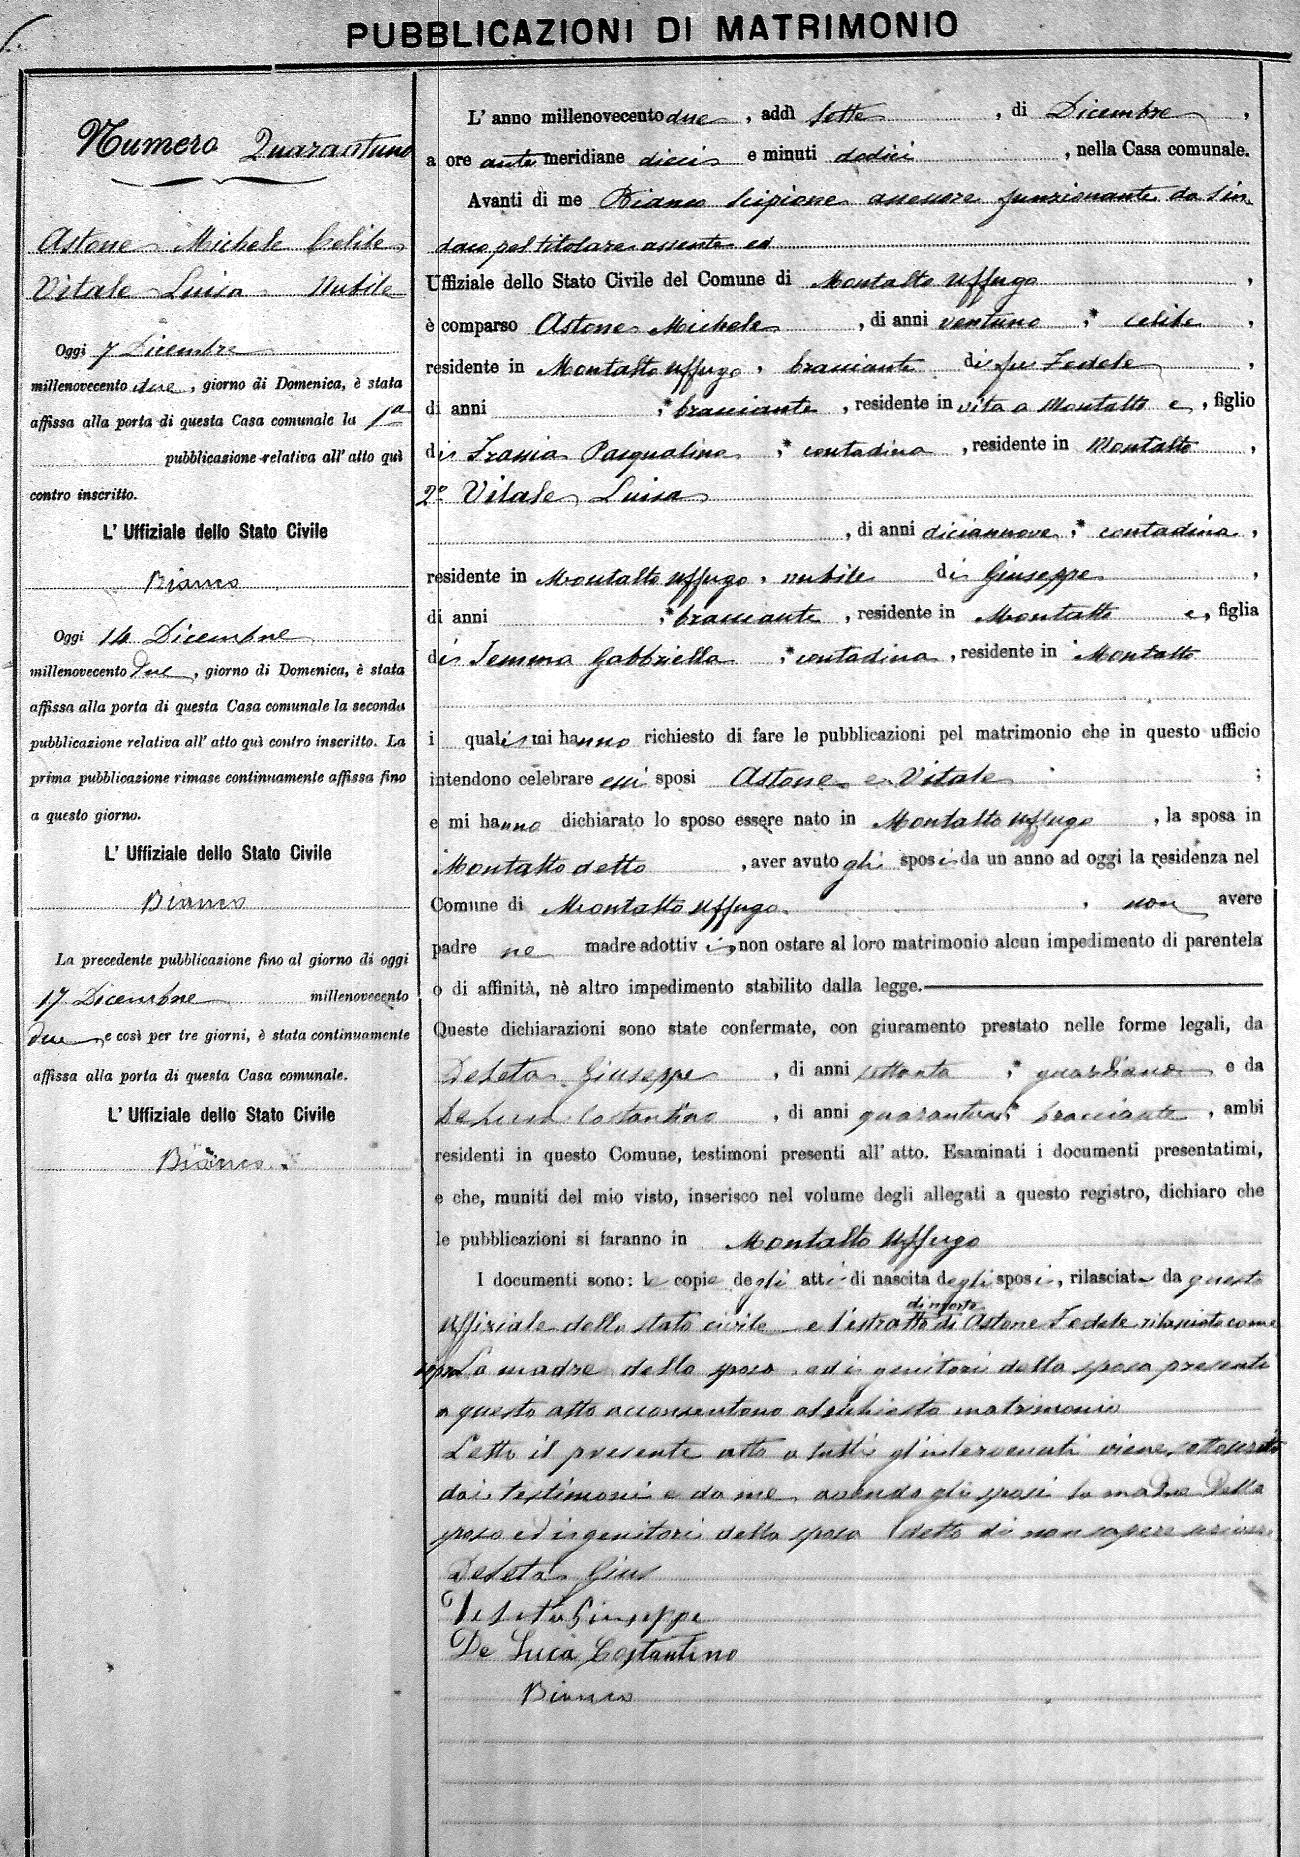 PUBBLICAZIONI DI MATRIMONIO
Numero Quarantuno
Astone Michele Celibe
Vitale Luisa Nubile
Oggi 7 Dicembre
millenovecento due, giorno di Domenica, è stata
affissa alla porta di questa Casa comunale la 1a
pubblicazione relativa all' atto quì
contro inscritto.
L' Uffiziale dello Stato Civile
Bianco
Oggi 14 Dicembre
millenovecento due, giorno di Domenica, è stata
affissa alla porta di questa Casa comunale la seconda
pubblicazione relativa all' atto quì contro inscritto. La
prima pubblicazione rimase continuamente affissa fino
a questo giorno.
L' Uffiziale dello Stato Civile
Bianco
La precedente pubblicazione fino al giorno di oggi
17 Dicembre millenovecento
due e così per tre giorni, è stata continuamente
affissa alla porta di questa Casa comunale.
L' Uffiziale dello Stato Civile
Bianco
L' anno millenovecento due, addì sette, di Dicembre,
a ore ante meridiane dieci e minuti dodici, nella Casa comunale.
Avanti di me Bianco Scipione assessore funzionante da Sin
daco pel titolare assente ed
Uffiziale dello Stato Civile del Comune di Montalto Uffugo,
è comparso Astone Michele, di anni ventuno, * celibe,
residente in Montalto Uffugo, bracciante di fu Fedele,
di anni , * bracciante, residente in vita a Montalto e, figlio
di Frassia Pasqualina, * contadina, residente in Montalto,
2o Vitale Luisa
, di anni diciannove, * contadina,
residente in Montalto Uffugo, nubile di Giuseppe,
di anni , * bracciante, residente in Montalto e, figlia
di Gabbriella, * contadina, residente in Montalto
i quali mi hanno richiesto di fare le pubblicazioni pel matrimonio che in questo ufficio
intendono celebrare essi sposi Astone e Vitale ;
e mi hanno dichiarato lo sposo essere nato in Montalto Uffugo, la sposa in
Montalto detto, aver avuto gli sposi da un anno ad oggi la residenza nel
Comune di Montalto Uffugo, non avere
padre ne madre adottivi, non ostare al loro matrimonio alcun impedimento di parentela
o di affinità, nè altro impedimento stabilito dalla legge.
Queste dichiarazioni sono state confermate, con giuramento prestato nelle forme legali, da
DeSeta Giuseppe, di anni settanta, * guardiano e da
De Luca Costantino, di anni * bracciante, ambi
residenti in questo Comune, testimoni presenti all' atto. Esaminati i documenti presentatimi,
e che, muniti del mio visto, inserisco nel volume degli allegati a questo registro, dichiaro che
le pubblicazioni si faranno in Montalto Uffugo
I documenti sono: le copie degli atti di nascita degli sposi, rilasciate da questo
Uffiziale dello stato civile e l'estratto di morte di Astone Fedele rilasciato come
sopra La madre dello sposo ed i genitori della sposa presenti
a questo atto acconsentono al richiesto matrimonio
Letto il presente atto a tutti gl'intervenuti viene sottoscritto
dai testimoni e da me, avendo gli sposi la madre dello
sposo ed i genitori della sposa detto di non sapere scrivere
DeSeta Gius
DeSeta Giuseppe
De Luca Costantino
Bianco